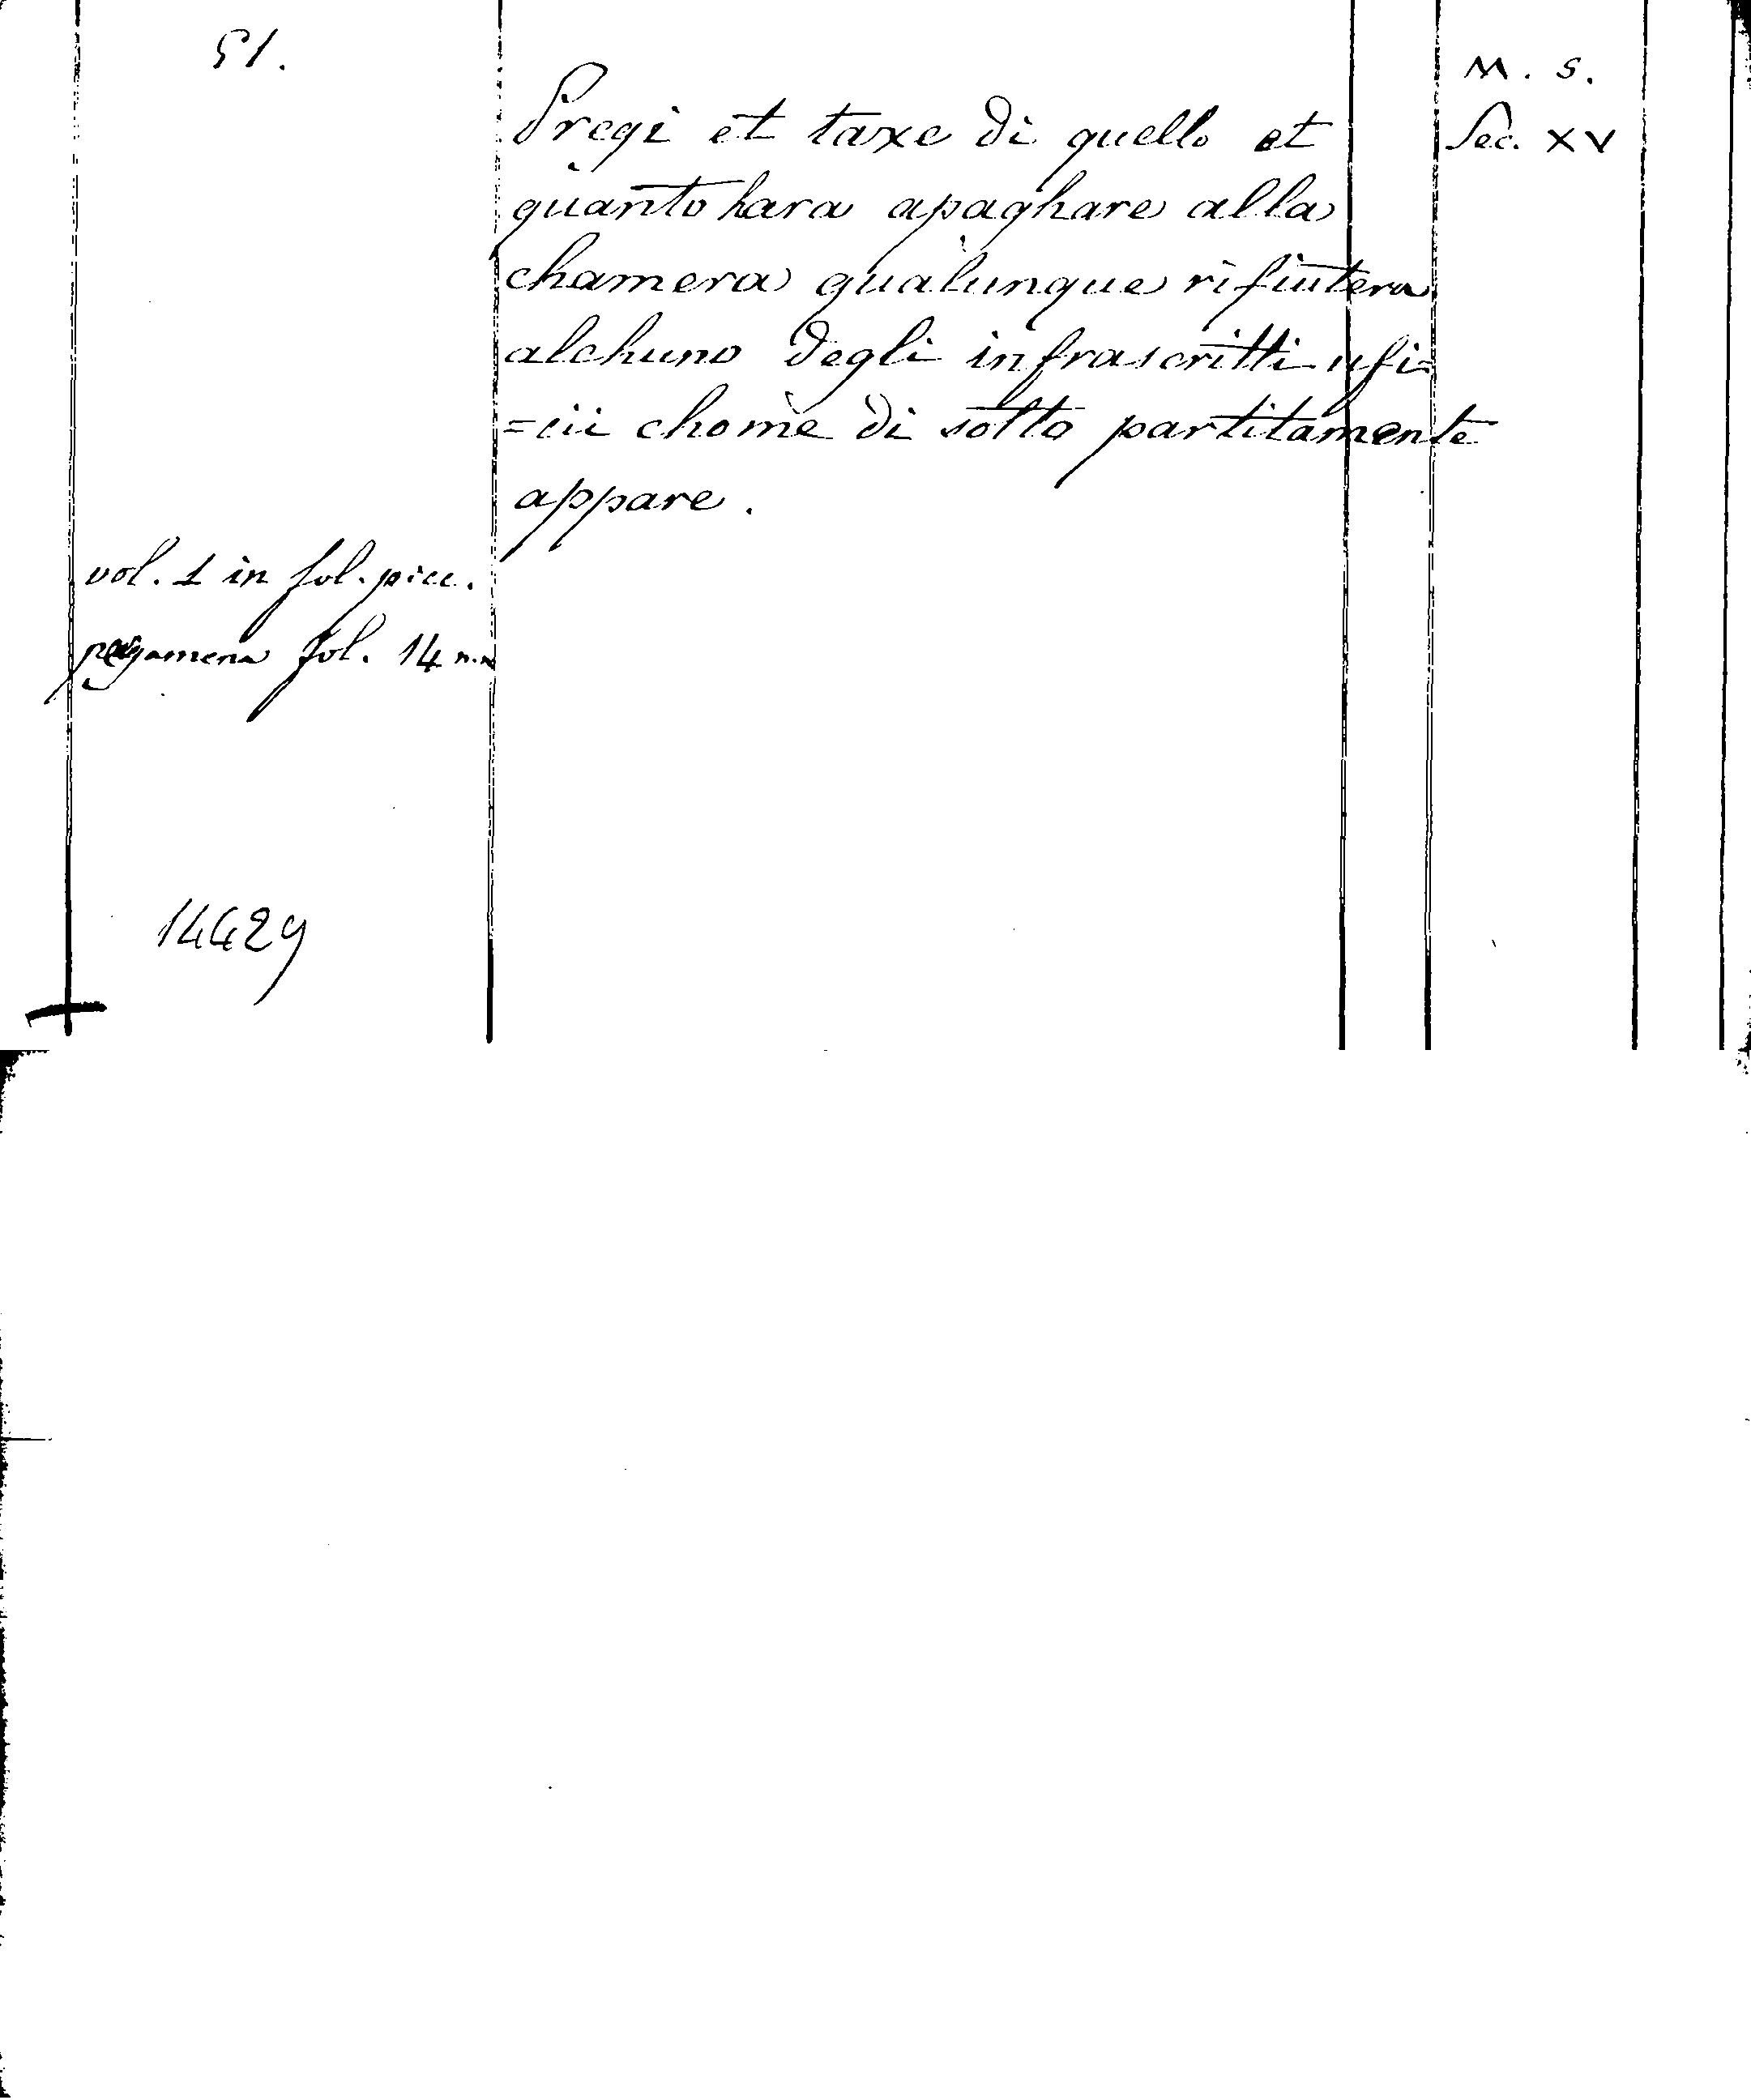 51.
M. S.
Sec. XV
Pregi et taxe di quello et
quanto hara apaghare alla
chamera qualunque rifiutera
alchuno degli infrascritti ufi=
=cii chome di sotto partitamente
appare.
vol. 1 in fol. picc.
pergamena fol. 14 n.n
14429